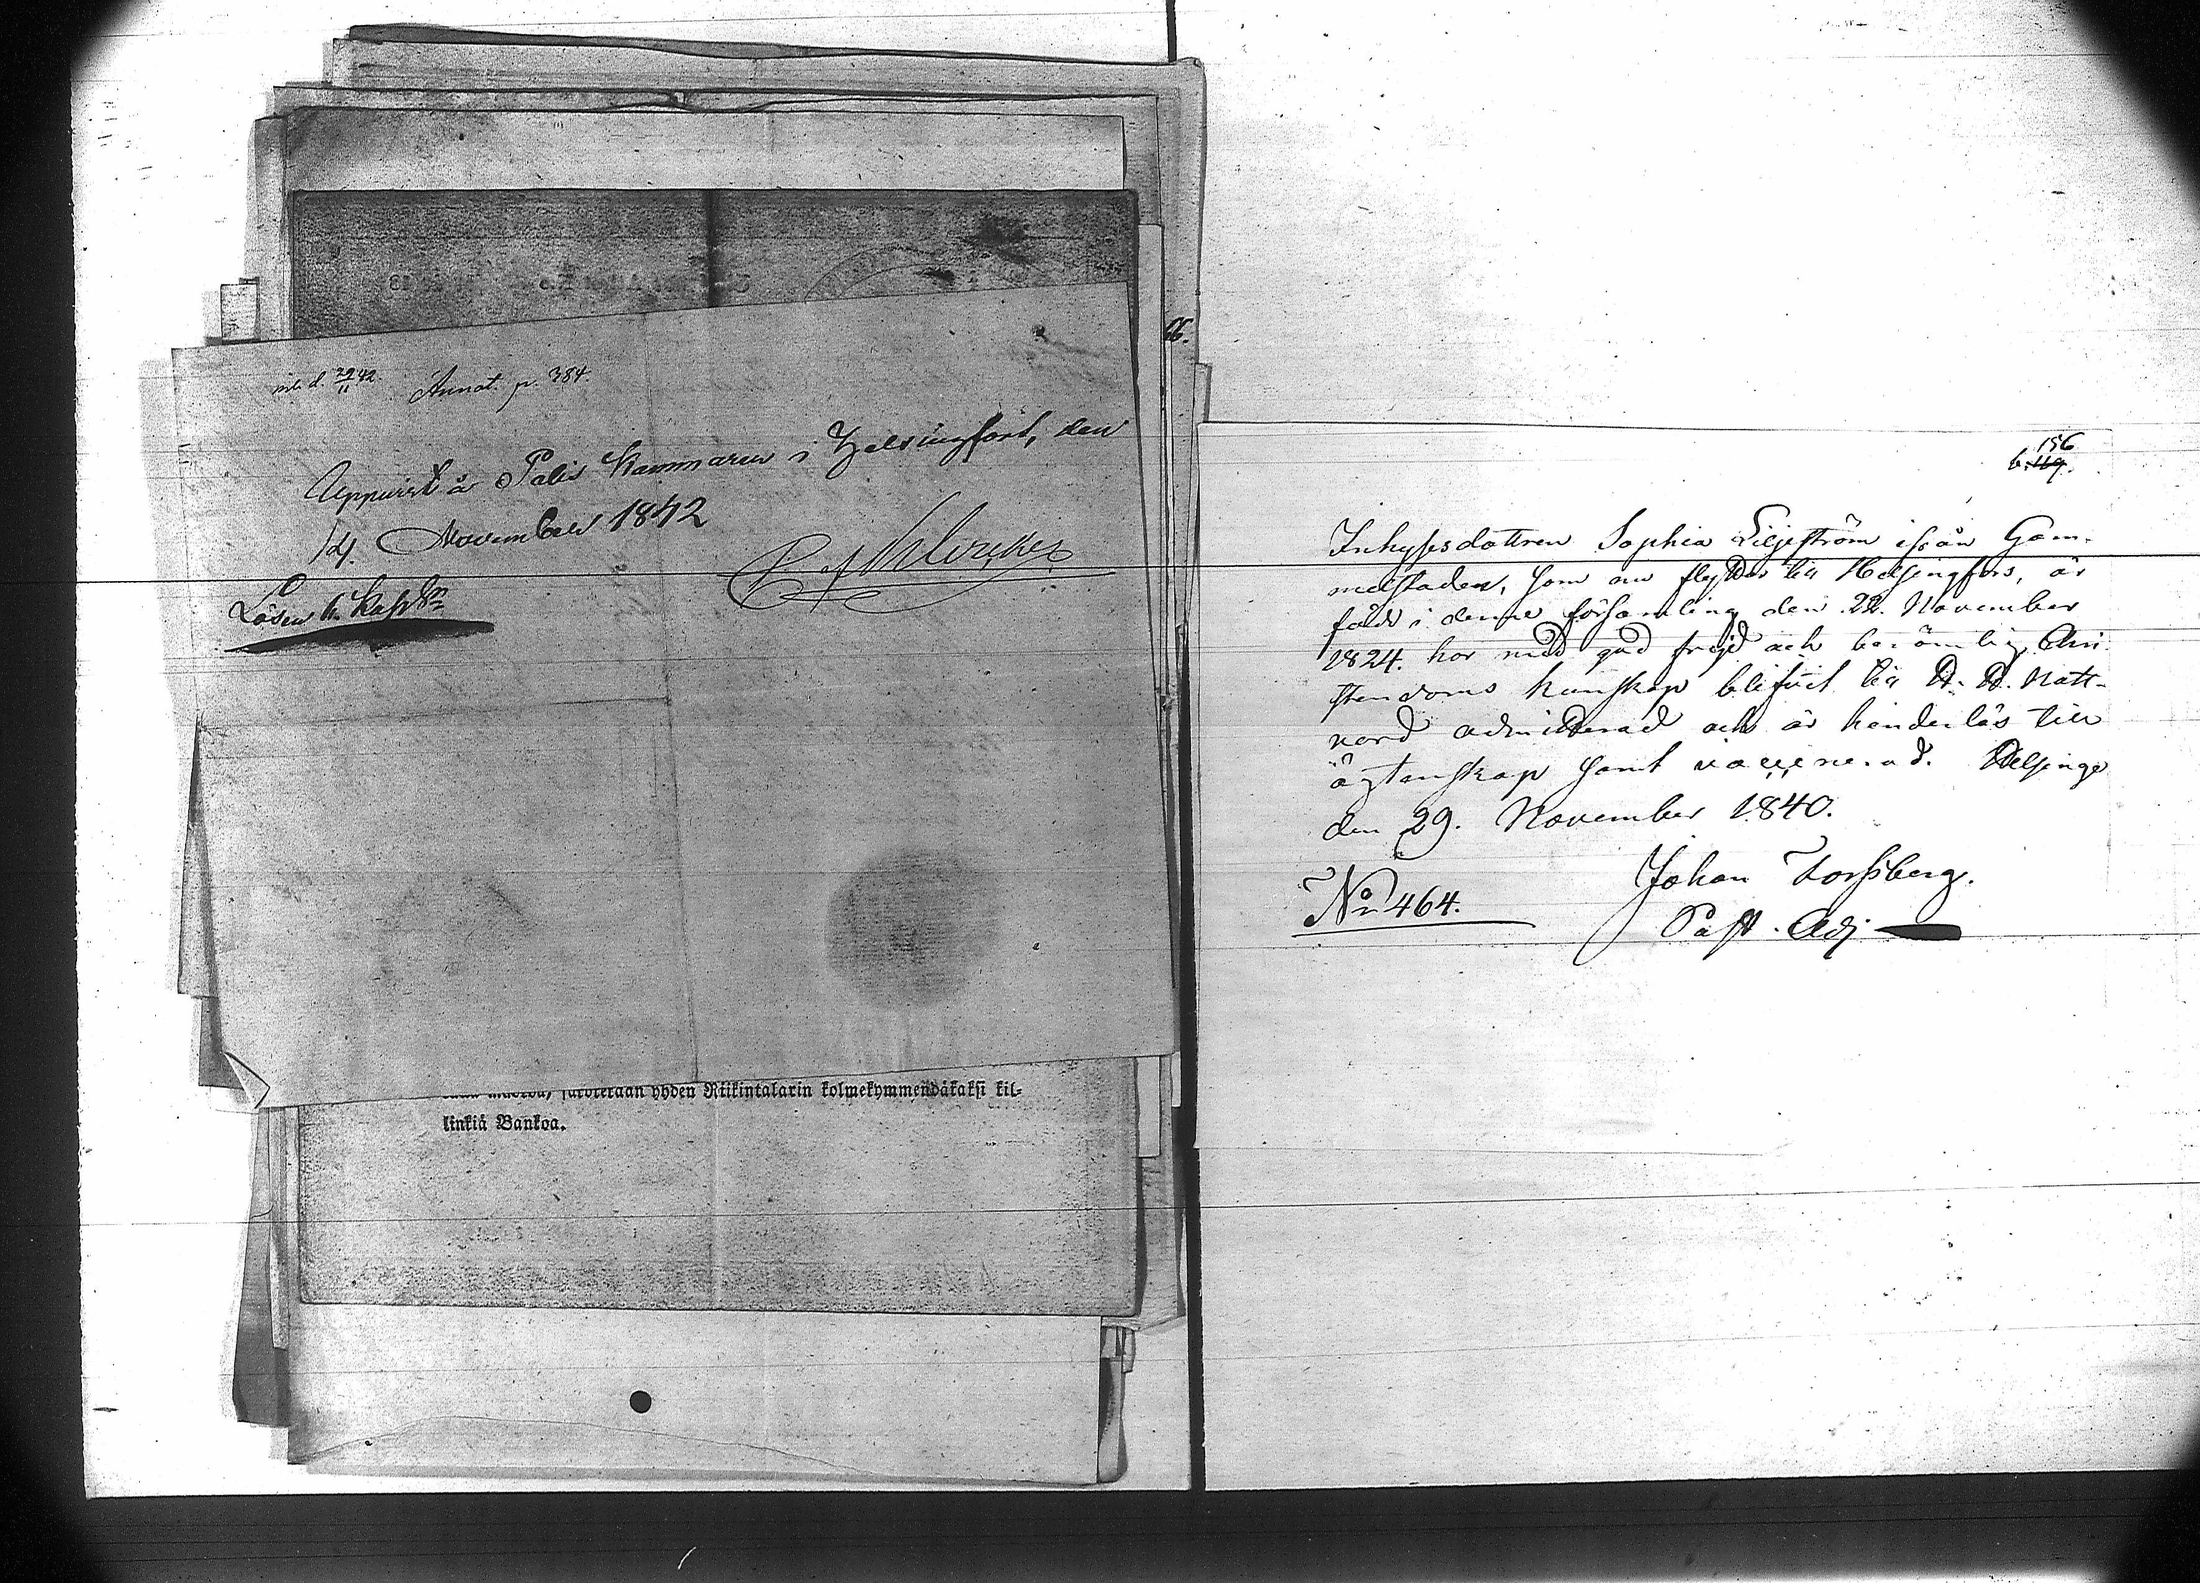 inl. d. 29/11 42. Annot. p. 384.
Uppvist å Polis Kammaren i Helsingfors, den
14. November 1842
Lösen 6. Kop. Srn
66.
linkiä Bankoa.
yhden Riikintalarin kolmekymmendäkaksi kil-
156
b. 119.
Inhysesdottren Sophia Liljeström ifrån Gam-
melstaden, som nu flyttar till Helsingfors, är
född i denne församling den 22. November
1824. har med god frejd och berömlig Chri-
stendoms kunskap blifvit till H. H. Natt-
vard admitterad och är hinderlös till
ägtenskap samt vaccinerad. Helsinge
den 29. November 1840.
Johan Forssberg.
Past. Adj.
No 464.